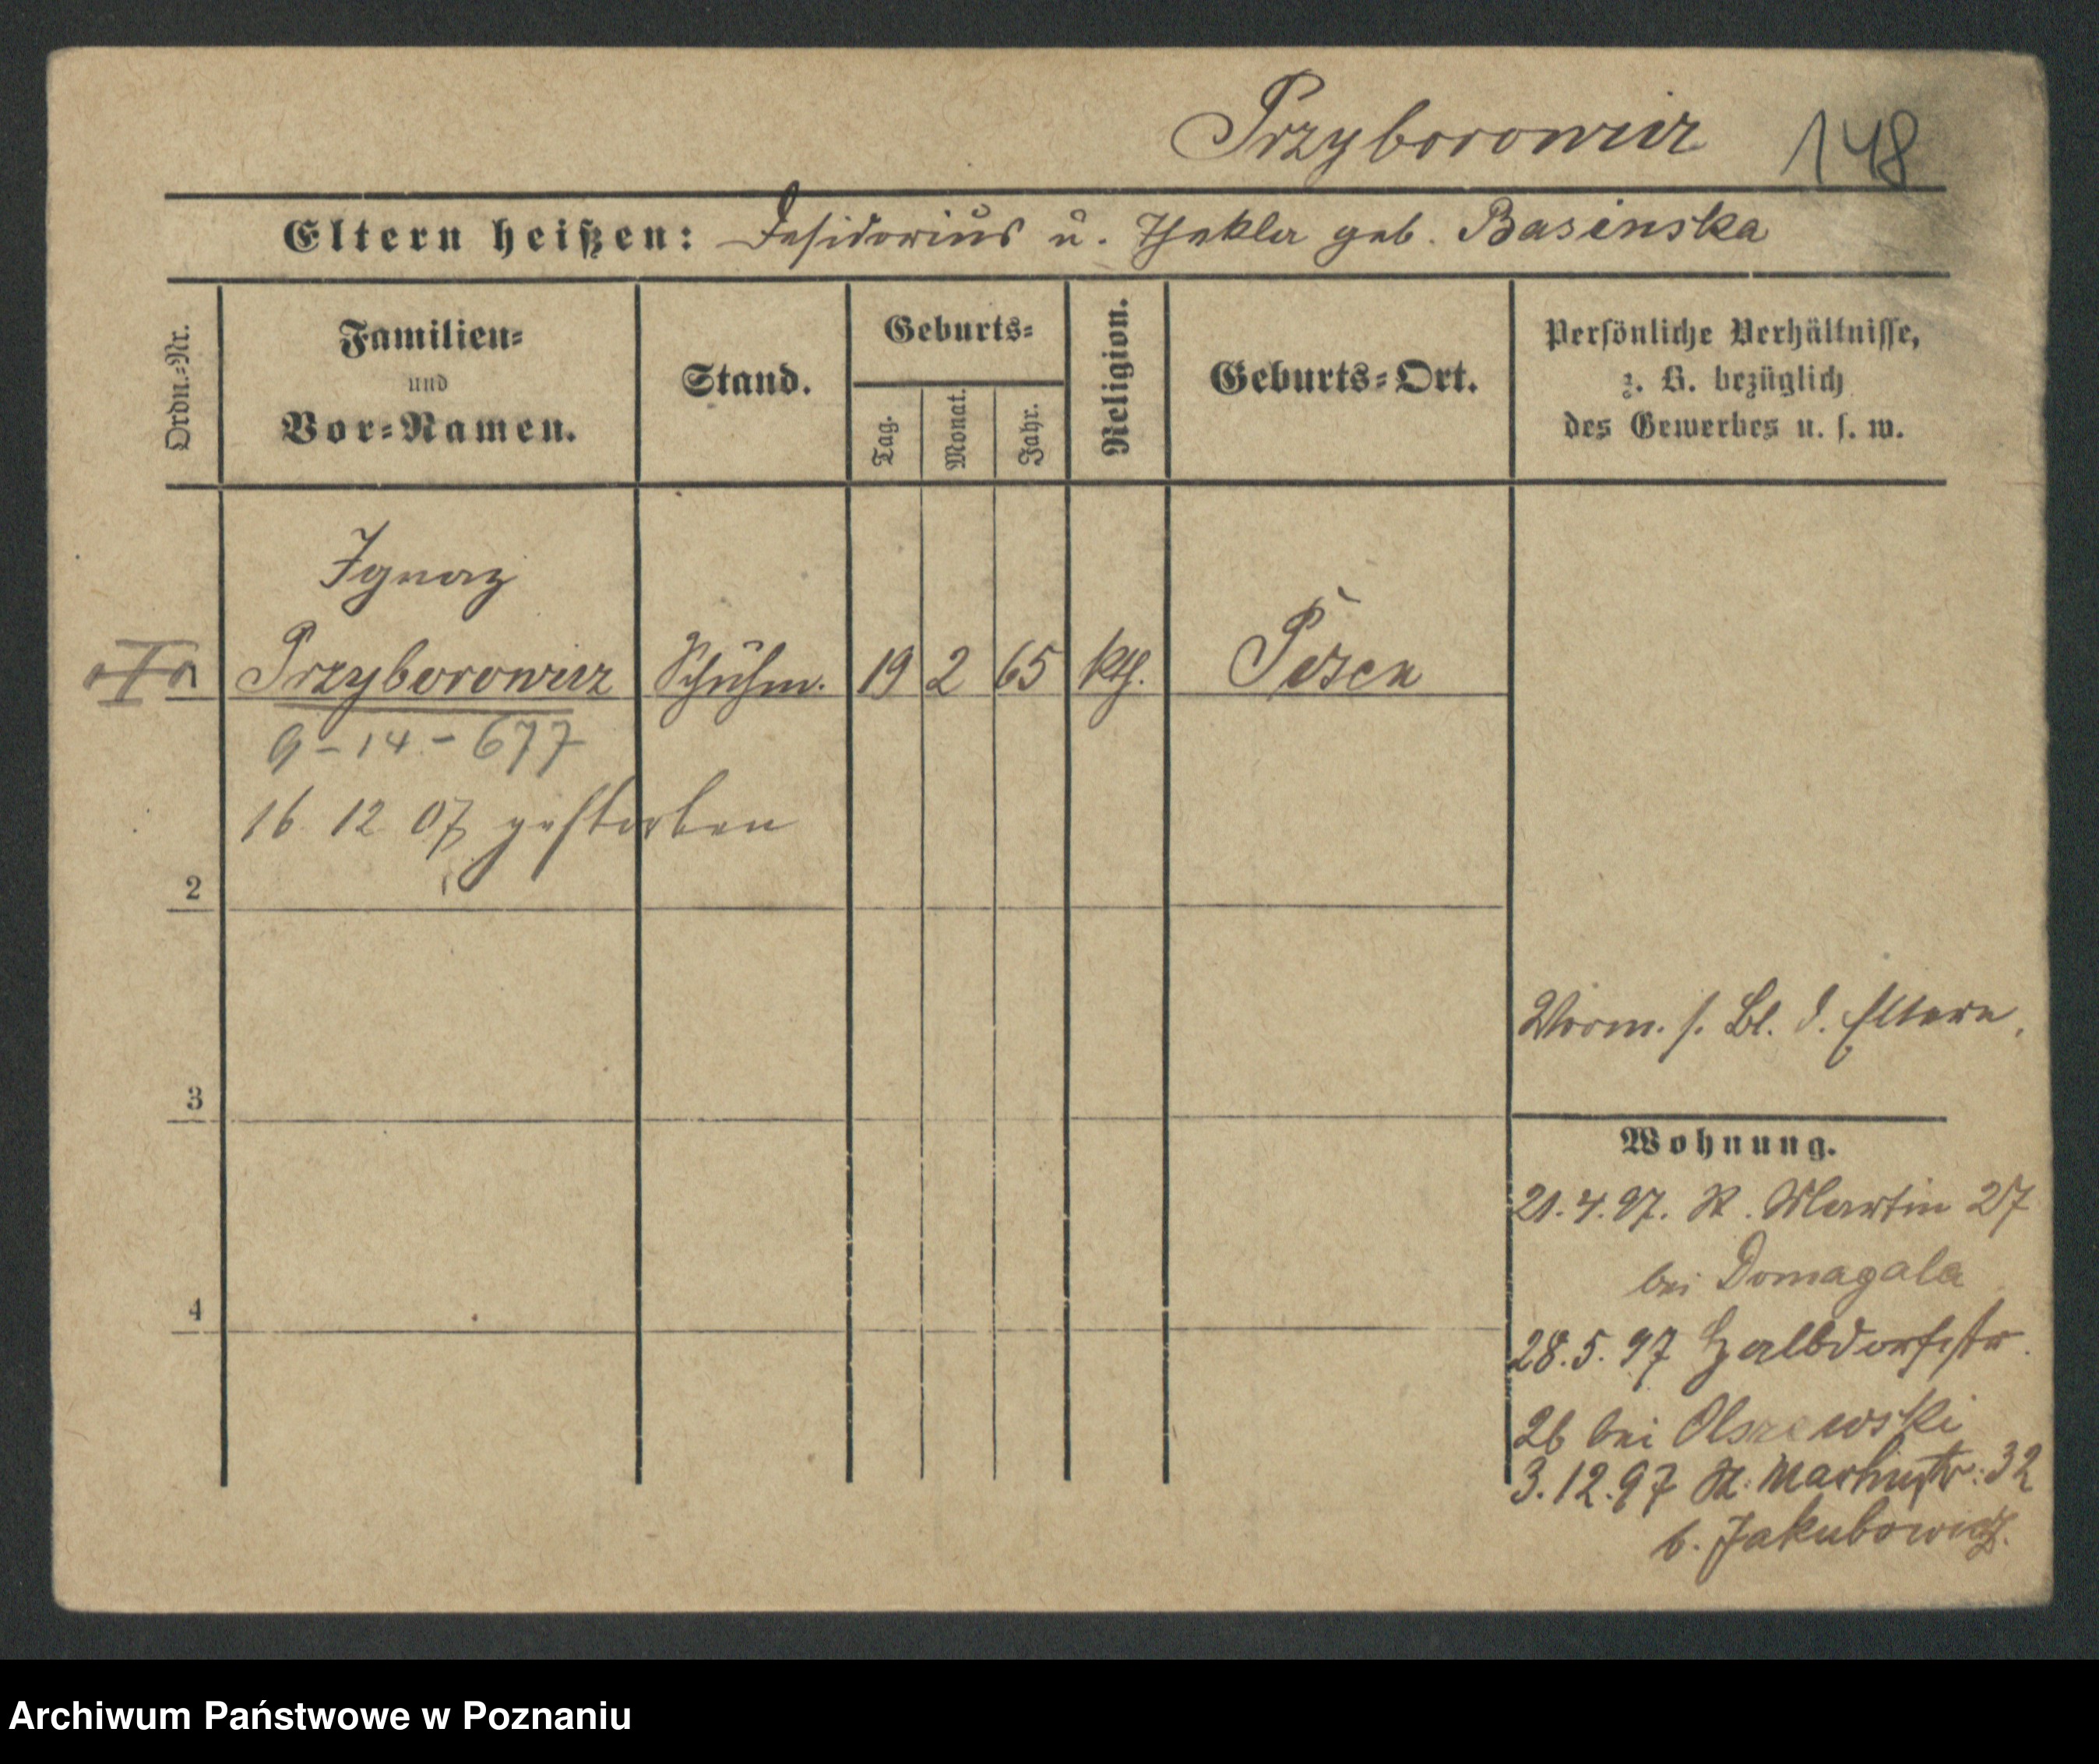 Przyborowicz 148
Eltern heißen: Desiderius u. Thekla geb. Basinska
Ordn.-Nr.
Familien-
und
Vor-Namen.
Stand.
Geburts-
Tag.
Monat.
Jahr.
Religion.
Geburts-Ort.
Persönliche Verhältnisse,
z. B. bezüglich
des Gewerbes u. s. w.
Ignaz
Przyborowicz Schuhm. 19 2 65 kth. Posen
9-14-677
16 12 07 gestorben
2
Vorm. s. Bl. d. Eltern.
3
Wohnung.
21.4.97. St. Martin 27
bei Domagala
4
28.5.97 Halbdorfstr.
26 bei Olszewski
3.12.97 St. Martinstr. 32
b. Jakubowicz.
Archiwum Państwowe w Poznaniu